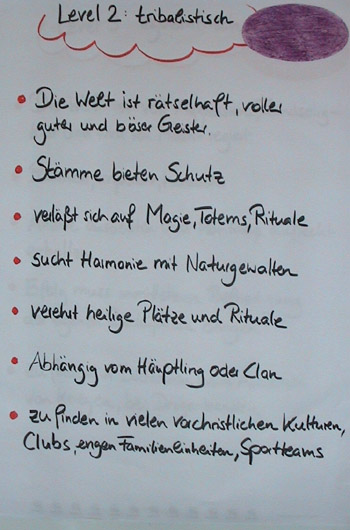 Level 2: tribalistisch
• Die Welt ist rätselhaft, voller
guter und böser Geister.
• Stämme bieten Schutz
• verläßt sich auf Magie, Totems, Rituale
• sucht Harmonie mit Naturgewalten
• verehrt heilige Plätze und Rituale
• Abhängig vom Häuptling oder Clan
• zu finden in vielen vorchristlichen Kulturen,
Clubs, engen Familieneinheiten, Sportteams